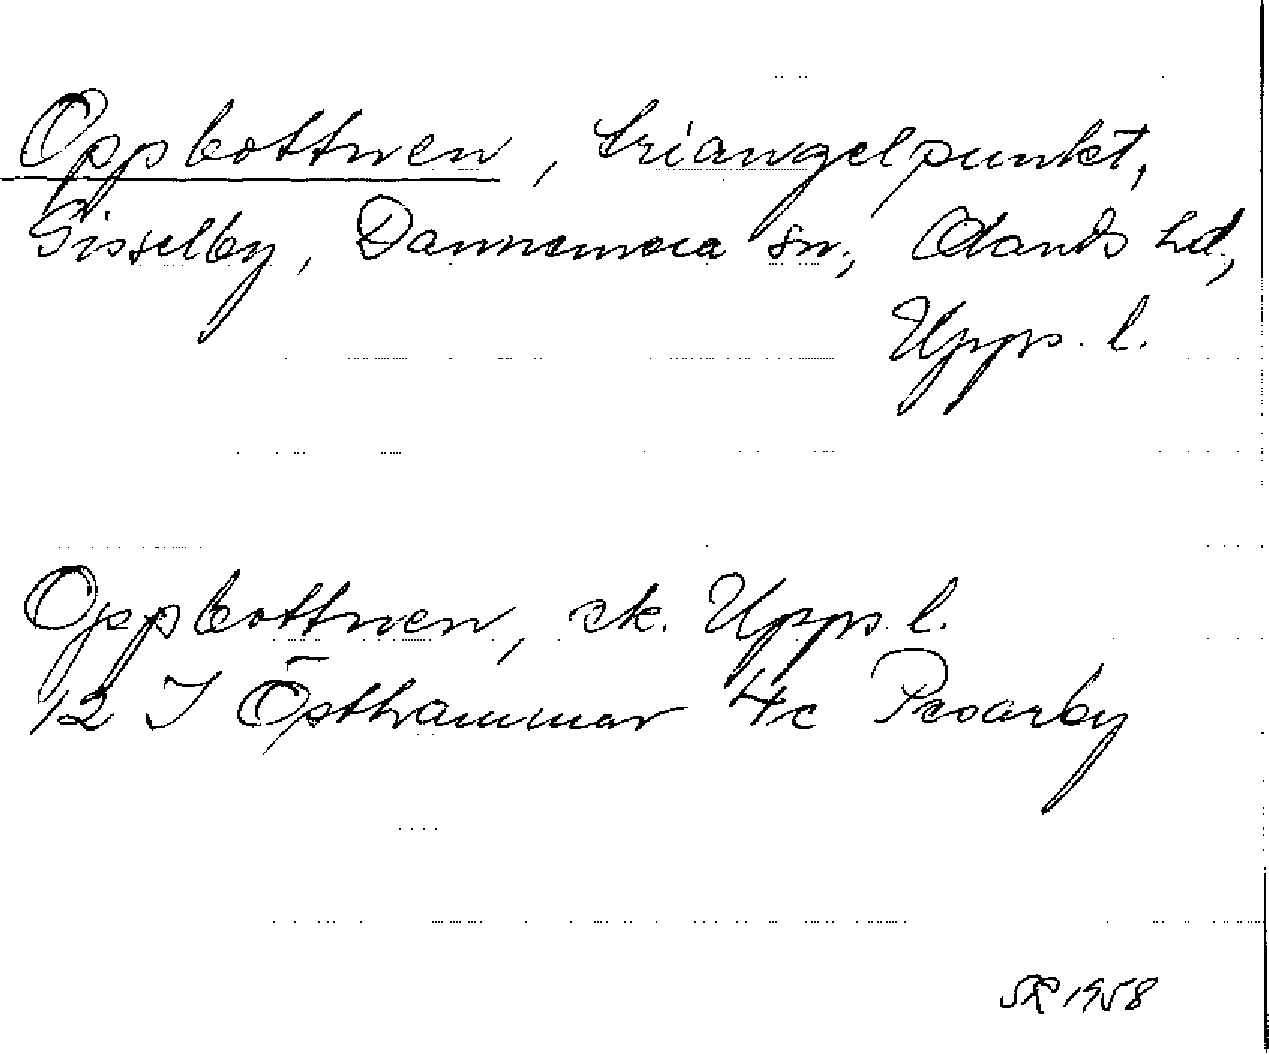 Oppbottnen, triangelpunkt,
Gisselby, Dannemora sn, Olands hd,
Upps. l.
Oppbottnen, ek. Upps. l.
12 I Östhammar 4c
SR 1958